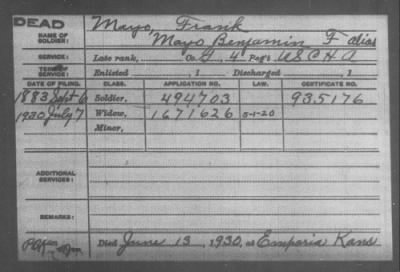 DEAD
NAME OF SOLDIER: Mayo, Frank
Mayo, Benjamin F alias
SERVICE: Late rank, Co. G, 4 Reg't U S C H A
TERM OF SERVICE: Enlisted , 1 Discharged , 1
DATE OF FILING. CLASS. APPLICATION NO. LAW. CERTIFICATE NO.
1883 Sept 6 Soldier, 494703 935176
1930 July 7 Widow, 1671626 5-1-20
Minor,
ADDITIONAL SERVICES:
REMARKS:
Died June 13, 1930, at Emporia Kans